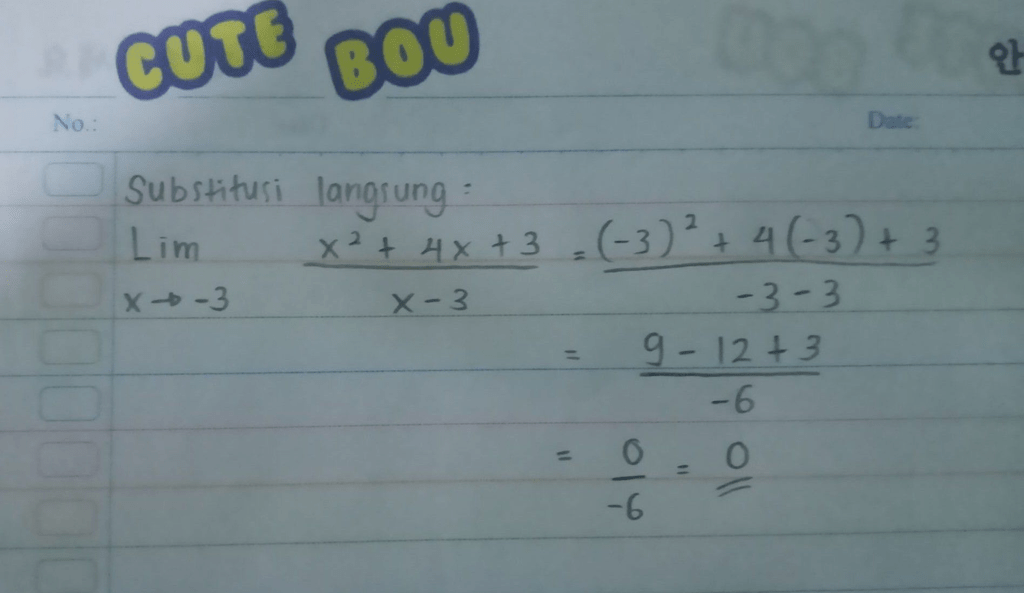 CUTE BOU
안
No.: Date:
Substitusi langsung :
Lim x² + 4x + 3 = (-3)² + 4(-3) + 3
x → -3 x - 3 -3 - 3
= 9 - 12 + 3
-6
= 0 = 0
-6